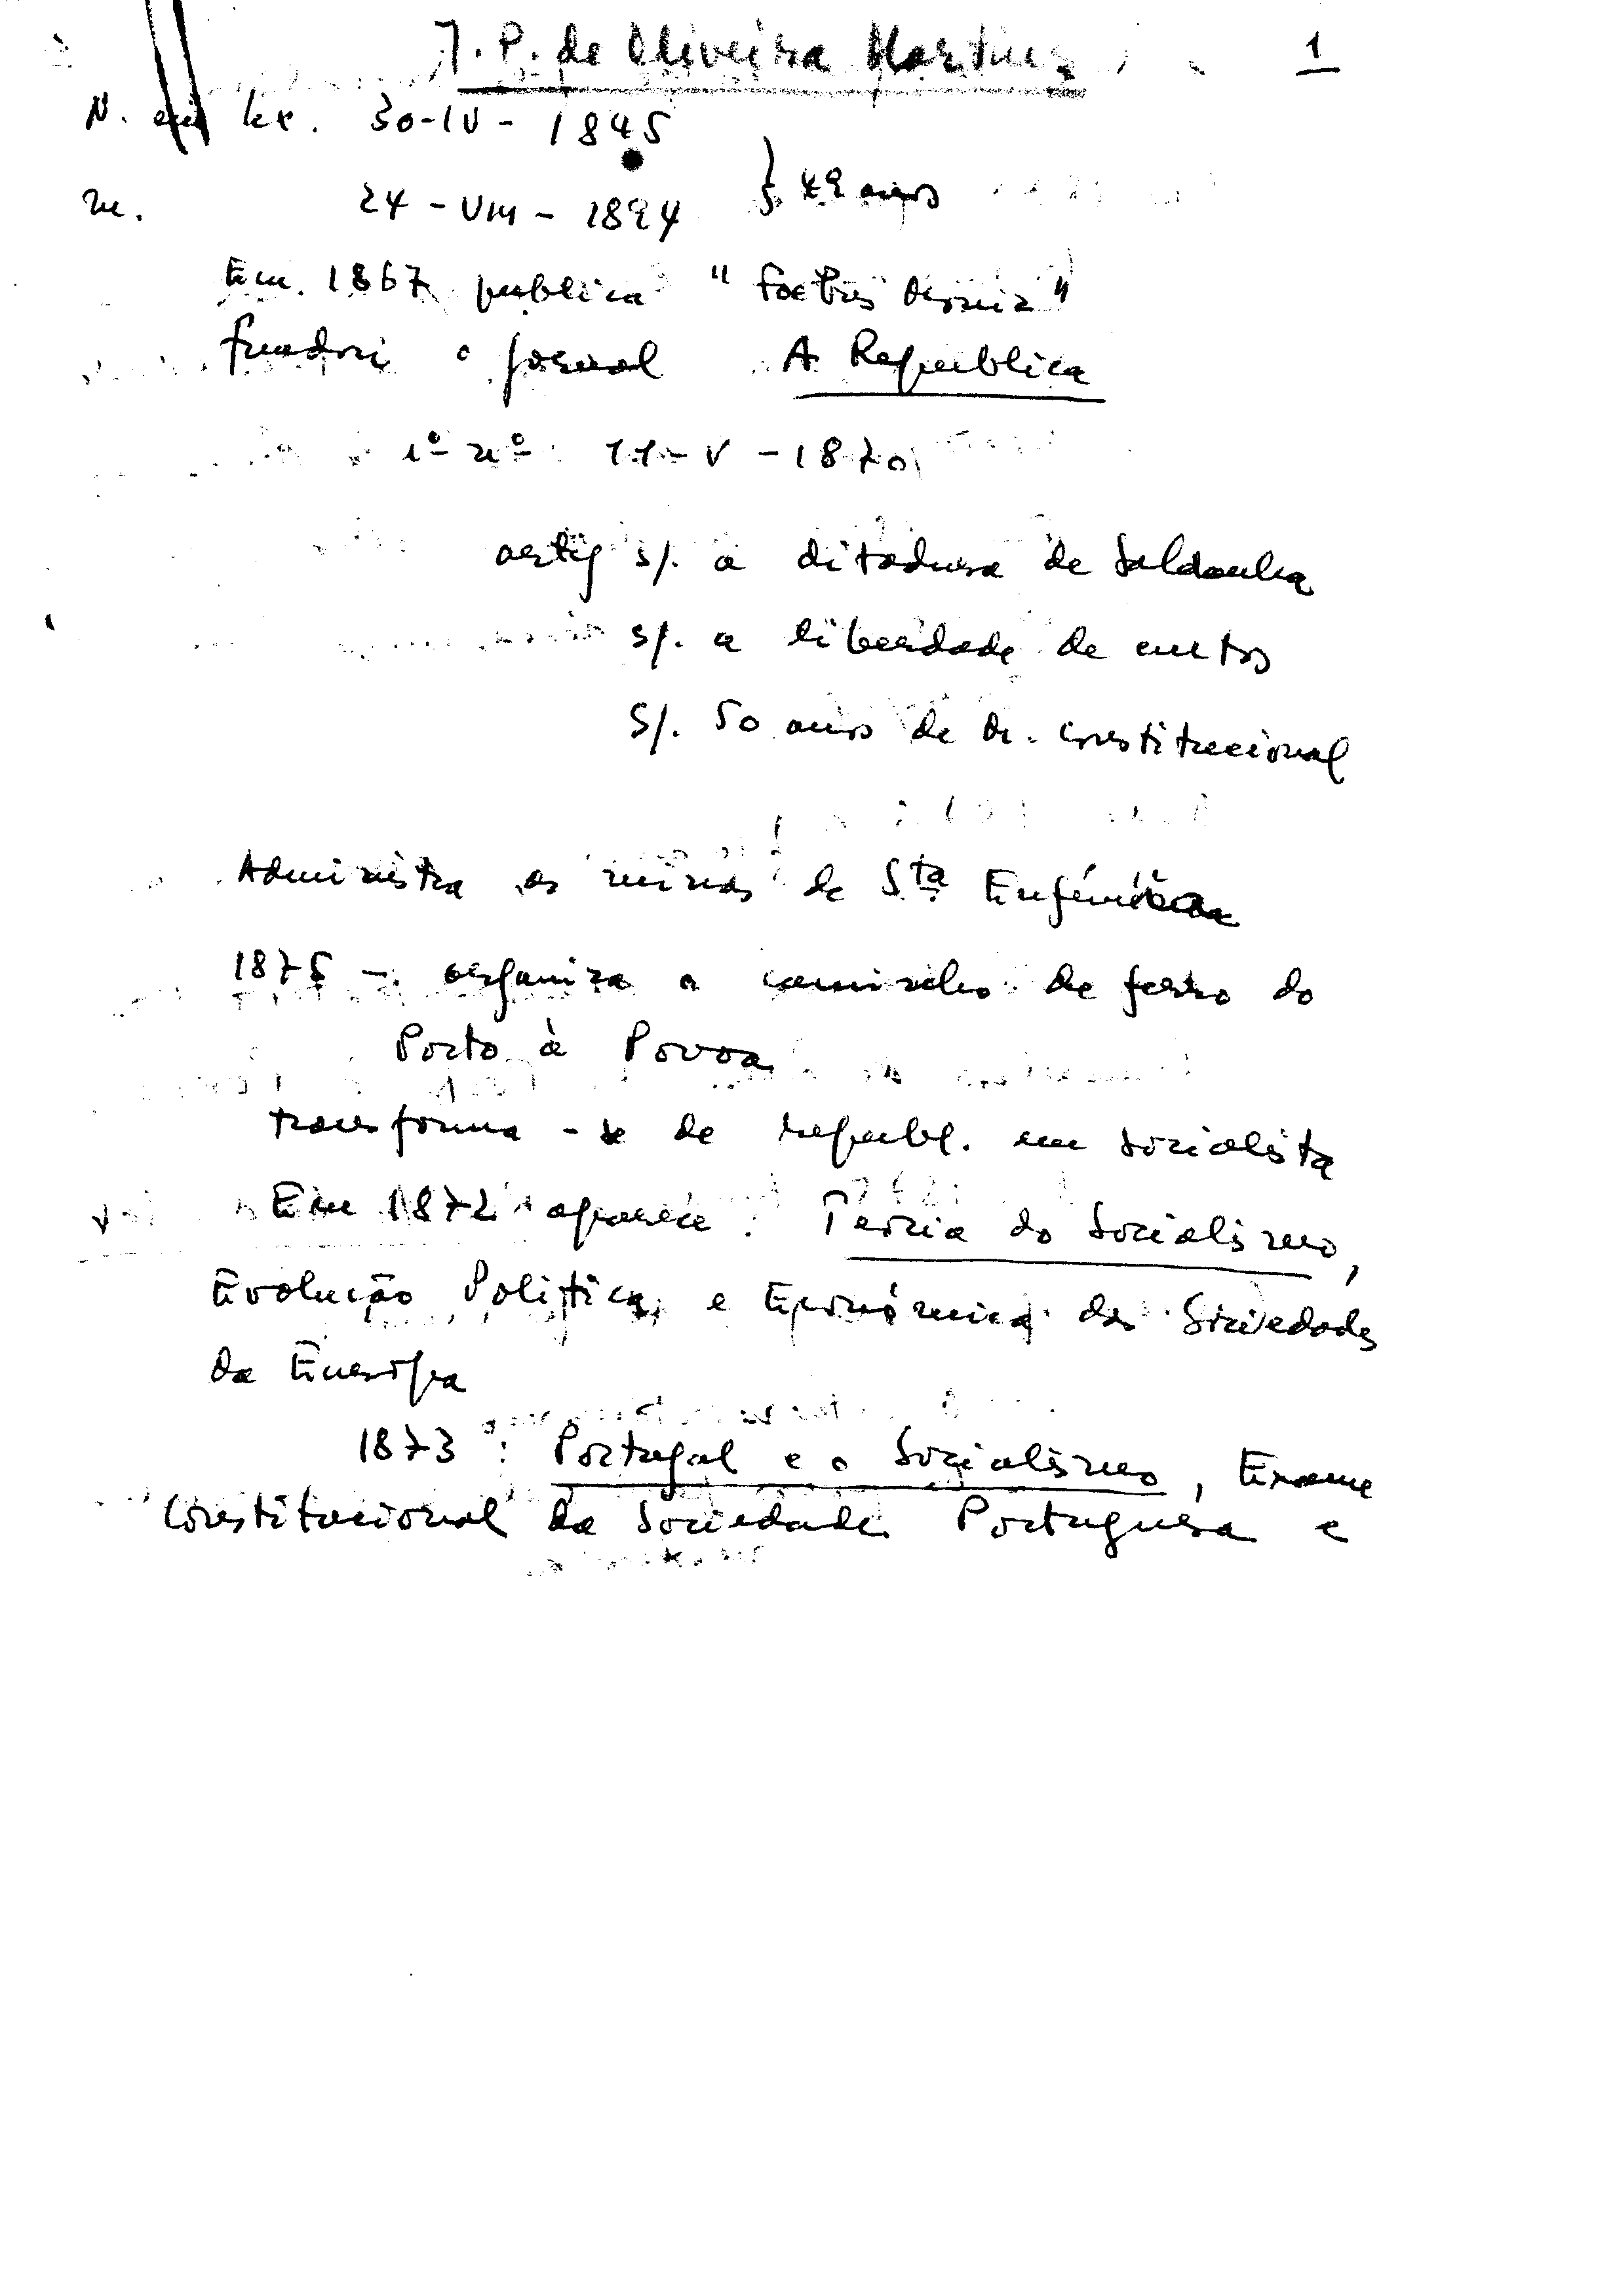 J. P. de Oliveira Martins 1
N. em Lx. 30-IV-1845
m. 24-VIII-1894 } 49 anos
Em 1867 publica "Foebus Moniz"
o jornal A Republica
1º nº 11-V-1870
artig s/. a ditadura de Saldanha
s/. a liberdade de cultos
S/. 50 anos de constitucional
Administra as minas de Sta Eufémia
1875 - organiza o caminho de ferro do
Porto à Povoa
transforma-se de republ. em socialista
Em 1872 aparece: Teoria do Socialismo,
Evolução Politica e Económica das Sociedades
da Europa
1873: Portugal e o Socialismo, Exame
Constitucional da Sociedade Portuguesa e